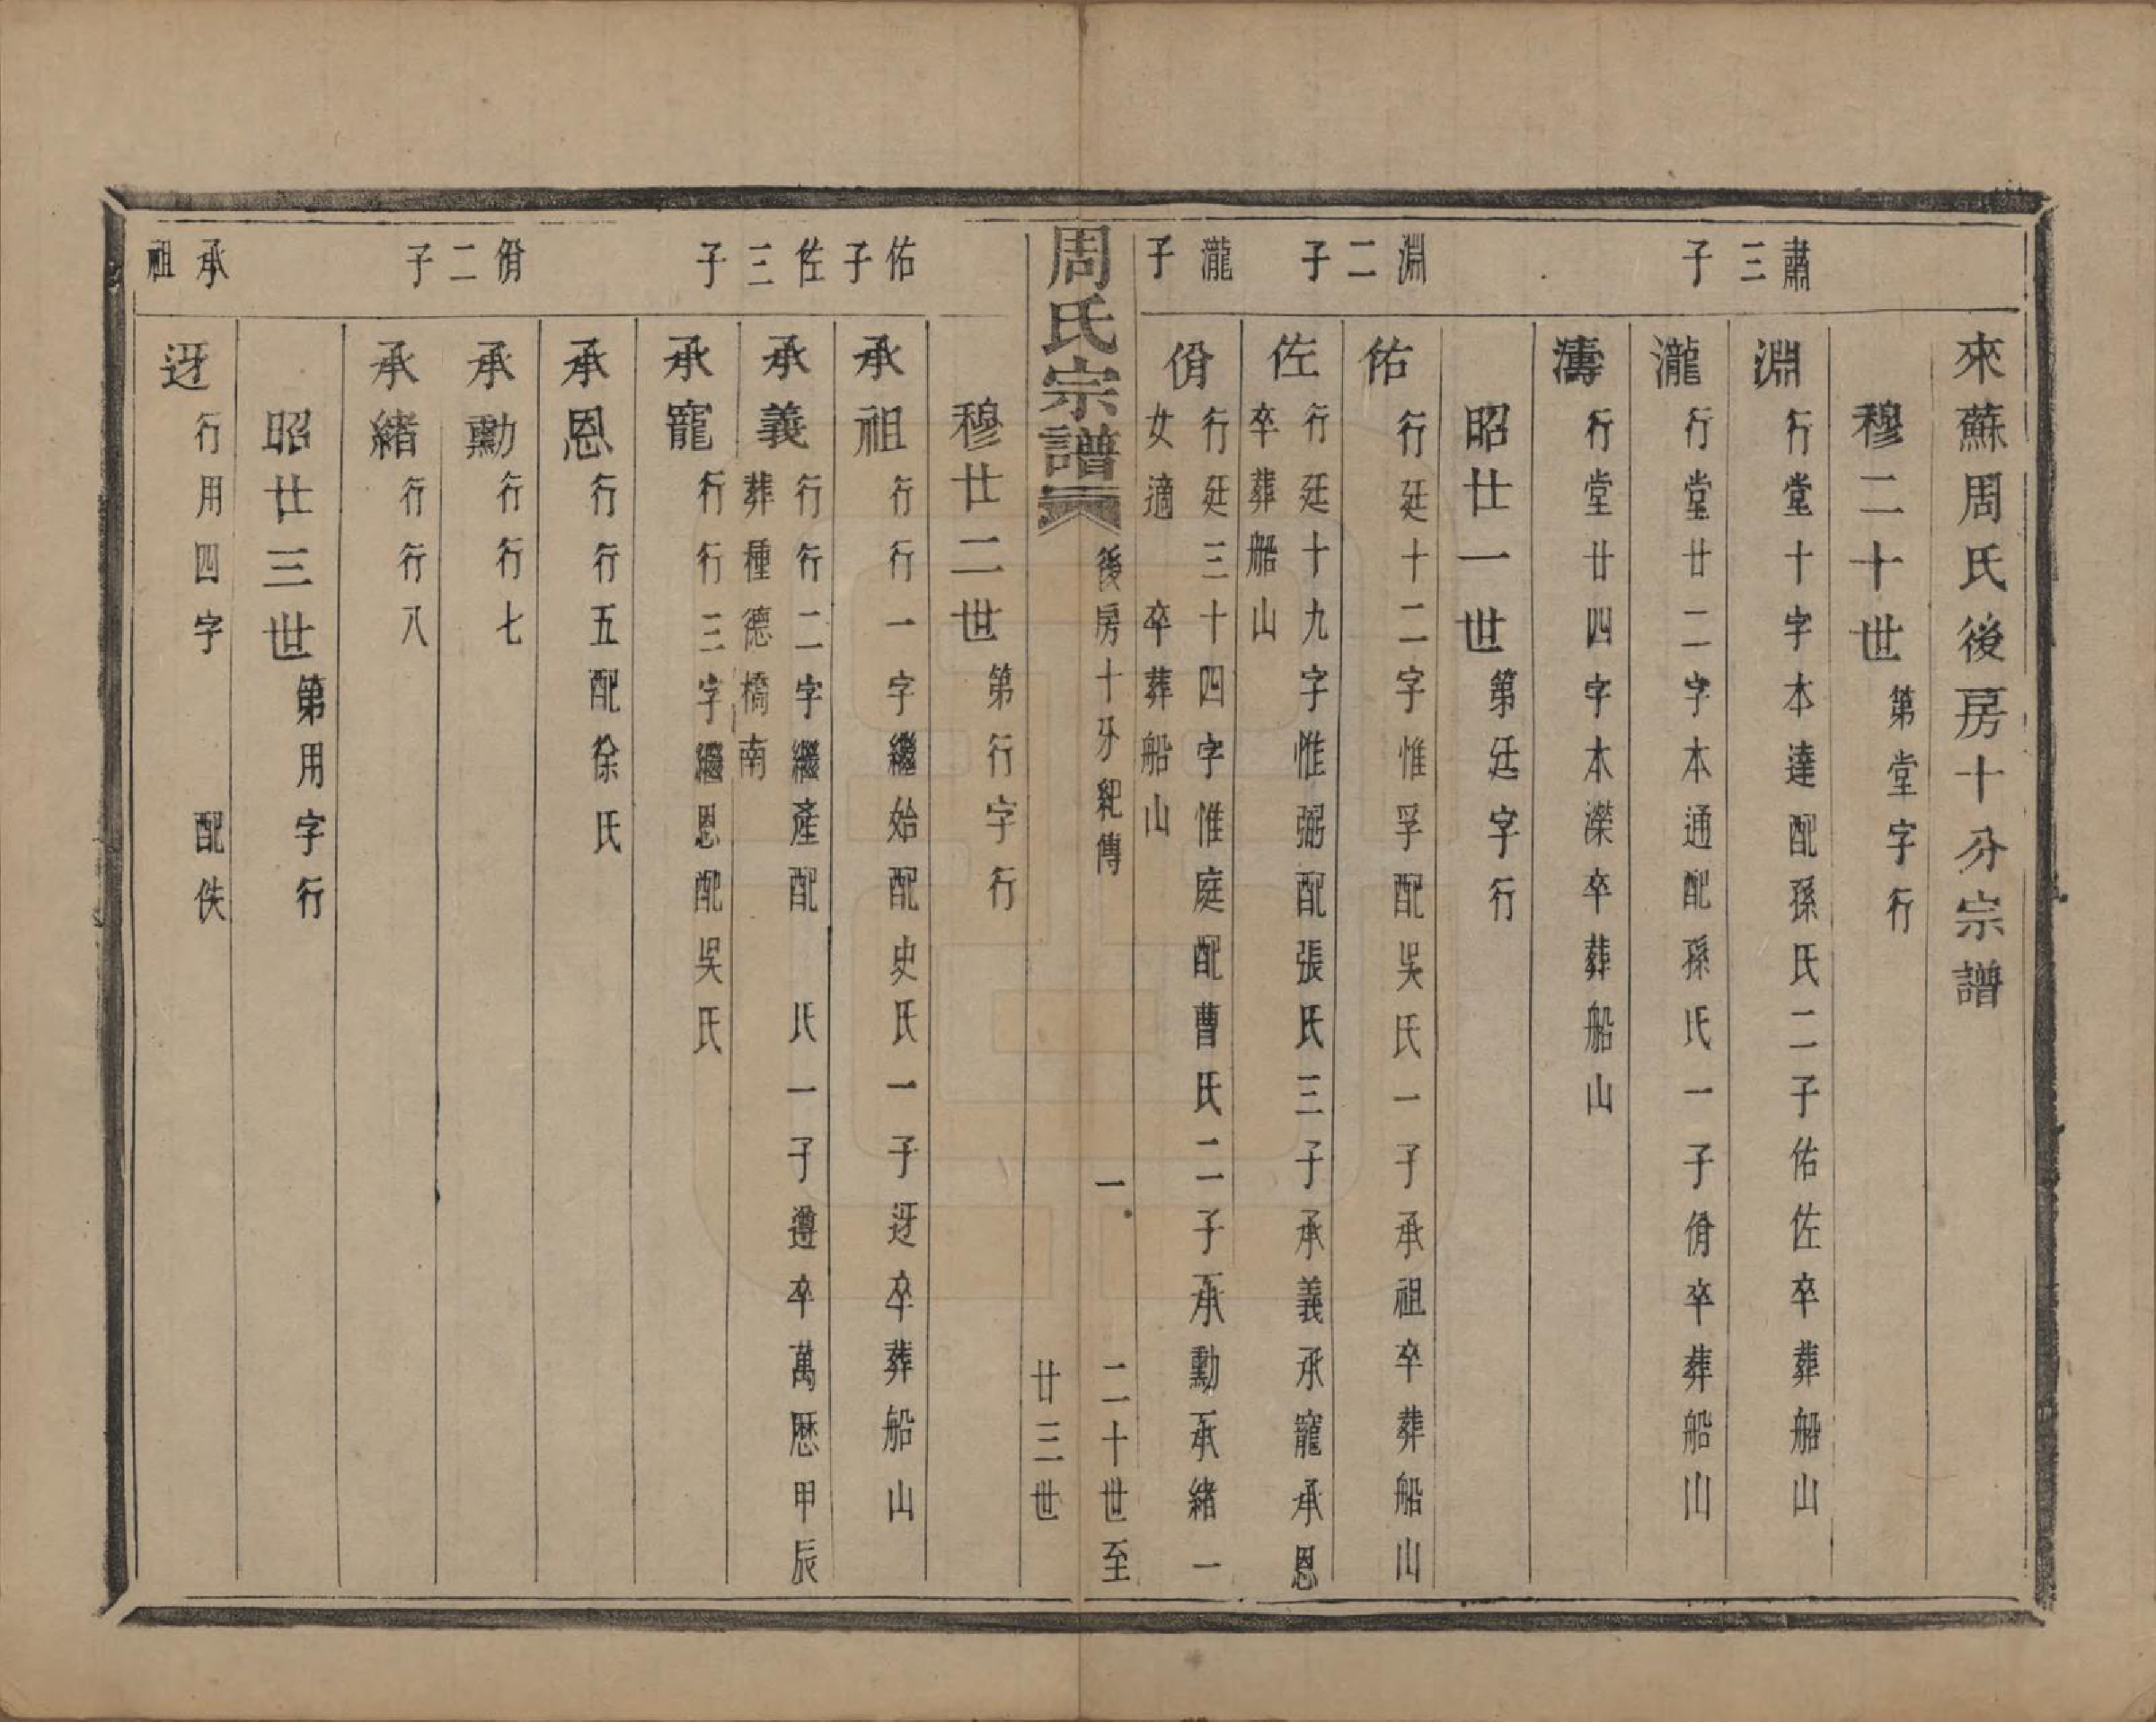 來蘇周氏後房十分宗譜
穆二十世第堂字行
肅三子
淵行堂十字本達配孫氏二子佑佐卒葬船山
瀧行堂廿二字本通配孫氏一子佾卒葬船山
濤行堂廿四字本濼卒葬船山
昭廿一世第廷字行
淵二子
佑行廷十二字惟孚配吳氏一子承祖卒葬船山
佐行廷十九字惟弼配張氏三子承義承寵承恩
卒葬船山
瀧子
佾行廷三十四字惟庭配曹氏二子承勳承緒一
女適 卒葬船山
周氏宗譜
後房十分紀傳 一 二十世至
廿三世
穆廿二世第行字行
佑子
承祖行行一字繼始配史氏一子迓卒葬船山
佐三子
承義行行二字繼產配 氏一子遵卒萬歷甲辰
葬種德橋南
承寵行行三字繼恩配吳氏
承恩行行五配徐氏
佾二子
承勳行行七
承緒行行八
昭廿三世第用字行
承祖
迓行用四字 配佚